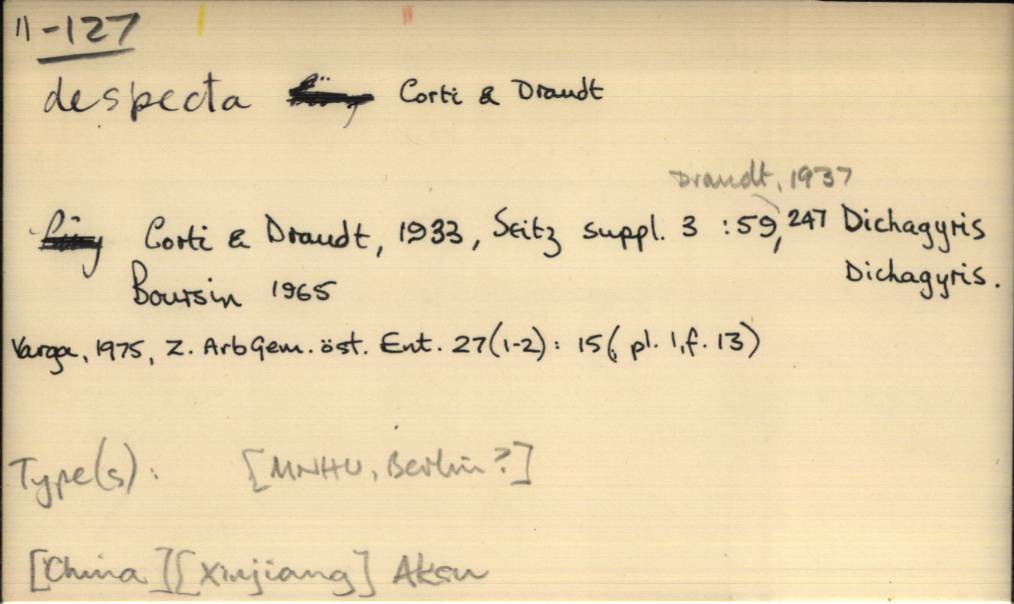 11-127
despecta Corti & Draudt
Draudt, 1937
Corti & Draudt, 1933, Seitz suppl. 3 : 59, 247 Dichagyris
Boursin 1965 Dichagyris.
Varga, 1975, Z. ArbGem. öst. Ent. 27(1-2): 15(, pl. 1, f. 13)
Type(s): [MNHU, Berlin?]
[China][Xinjiang] Aksu